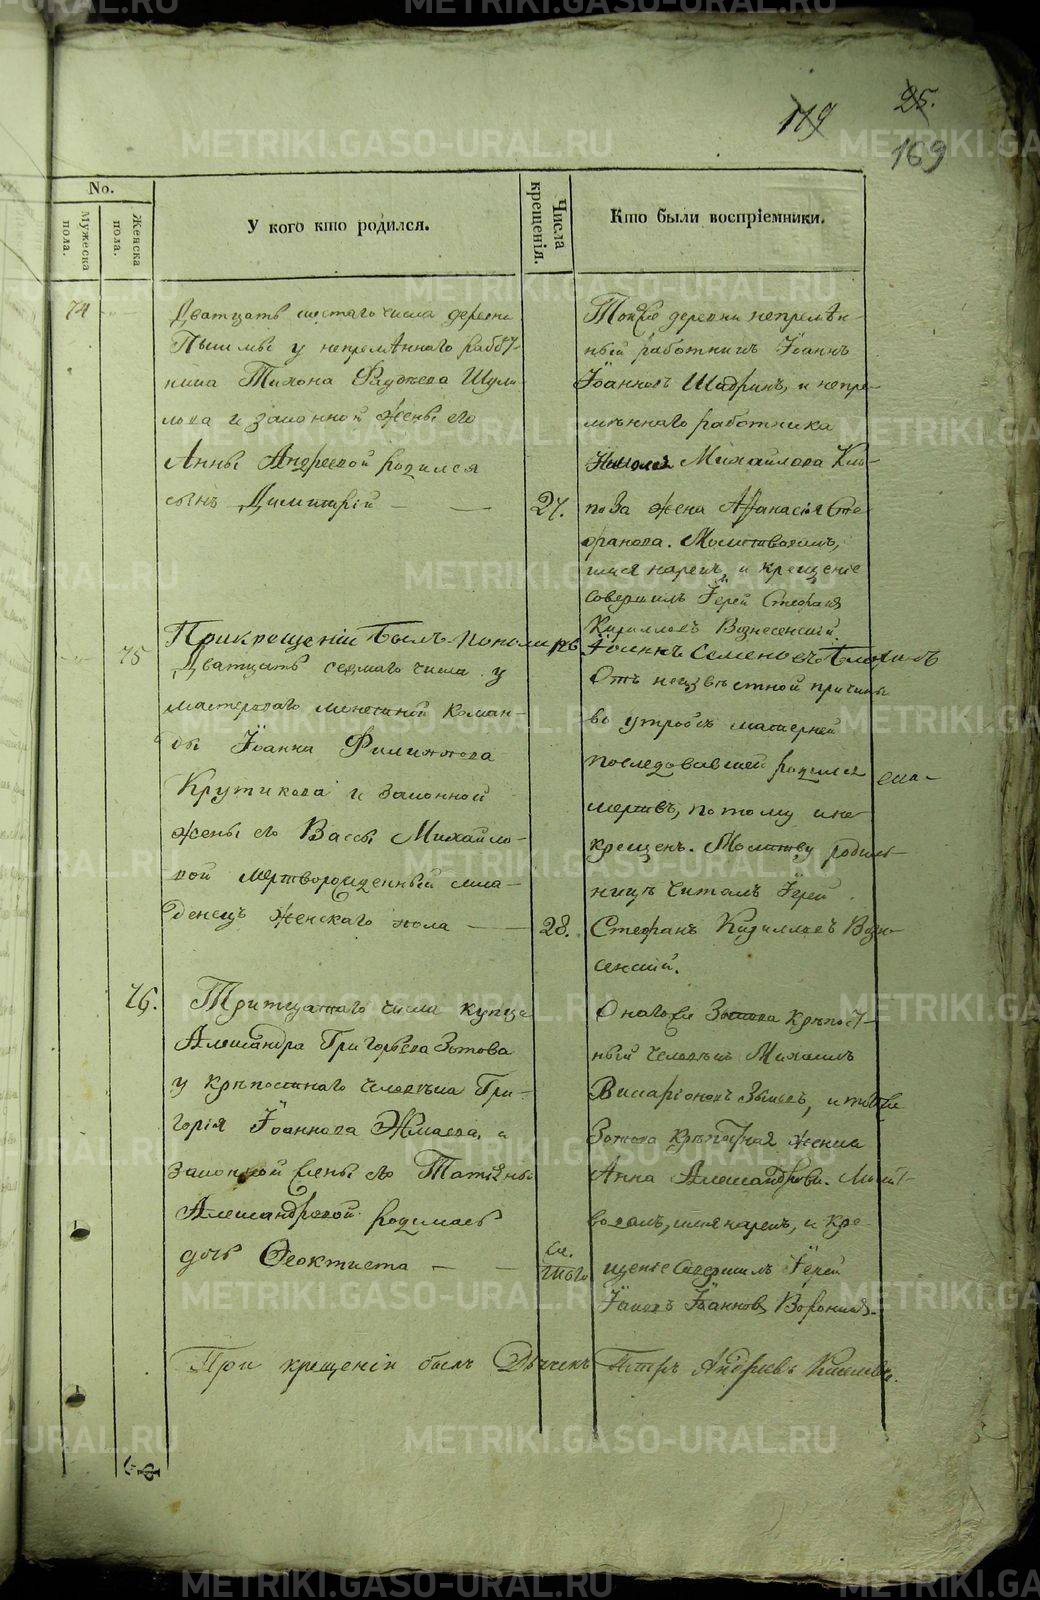 119
25.
169
No.
Мужеска пола.
Женска пола.
У кого кто родился.
Числа крещенія.
Кто были воспріемники.
74
Дватцать шестаго числа деревни
Пышмы у непремѣннаго работ-
ника Тихона
лова и законной жены его
Анны Андреевой родился
сынъ Димитрій
27.
Тойже деревни непремѣн-
ный работникъ Іоаннъ
Іоанновъ Шадринъ, и непре-
мѣннаго работника
Михайлова Кло-
пова жена Афанасія Сте-
фанова. Молитвовалъ,
имя нарекъ, и крещеніе
совершилъ Іерей Стефанъ
Кирилловъ Вознесенскій.
При крещеніи былъ пономарь Іоаннъ Семеновъ
75
Дватцать седмаго числа у
мастероваго команн-
ды Іоанна Филиппова
Крутикова и законной
жены его Вассы Михайло-
вой мертворожденный мла-
денецъ женскаго пола
28.
Отъ неизвѣстной причины
во утробѣ матерней
последовавшей родился
мертвъ, потому и не
крещенъ. Молитву родиль-
ницѣ читалъ Іерей
Стефанъ Кирилловъ Возне-
сенскій.
76.
Тритцатаго числа купца
Александра Григорьева Зотова
у крѣпостнаго человѣка Гри-
горія Іоаннова Жмаева, и
законной жены его Татіяны
Александровой родилась
дочь Феоктиста
Онагоже Зотова крѣпост-
ный человѣкъ Михаилъ
Виссаріоновъ и тогоже
Зотова крѣпостная женка
Анна Александрова. Молит-
вовалъ, имя нарекъ, и кре-
щеніе совершилъ Іерей
Іаковъ Іоанновъ
При крещеніи былъ Дьячекъ Петръ Андреевъ
METRIKI.GASO-URAL.RU